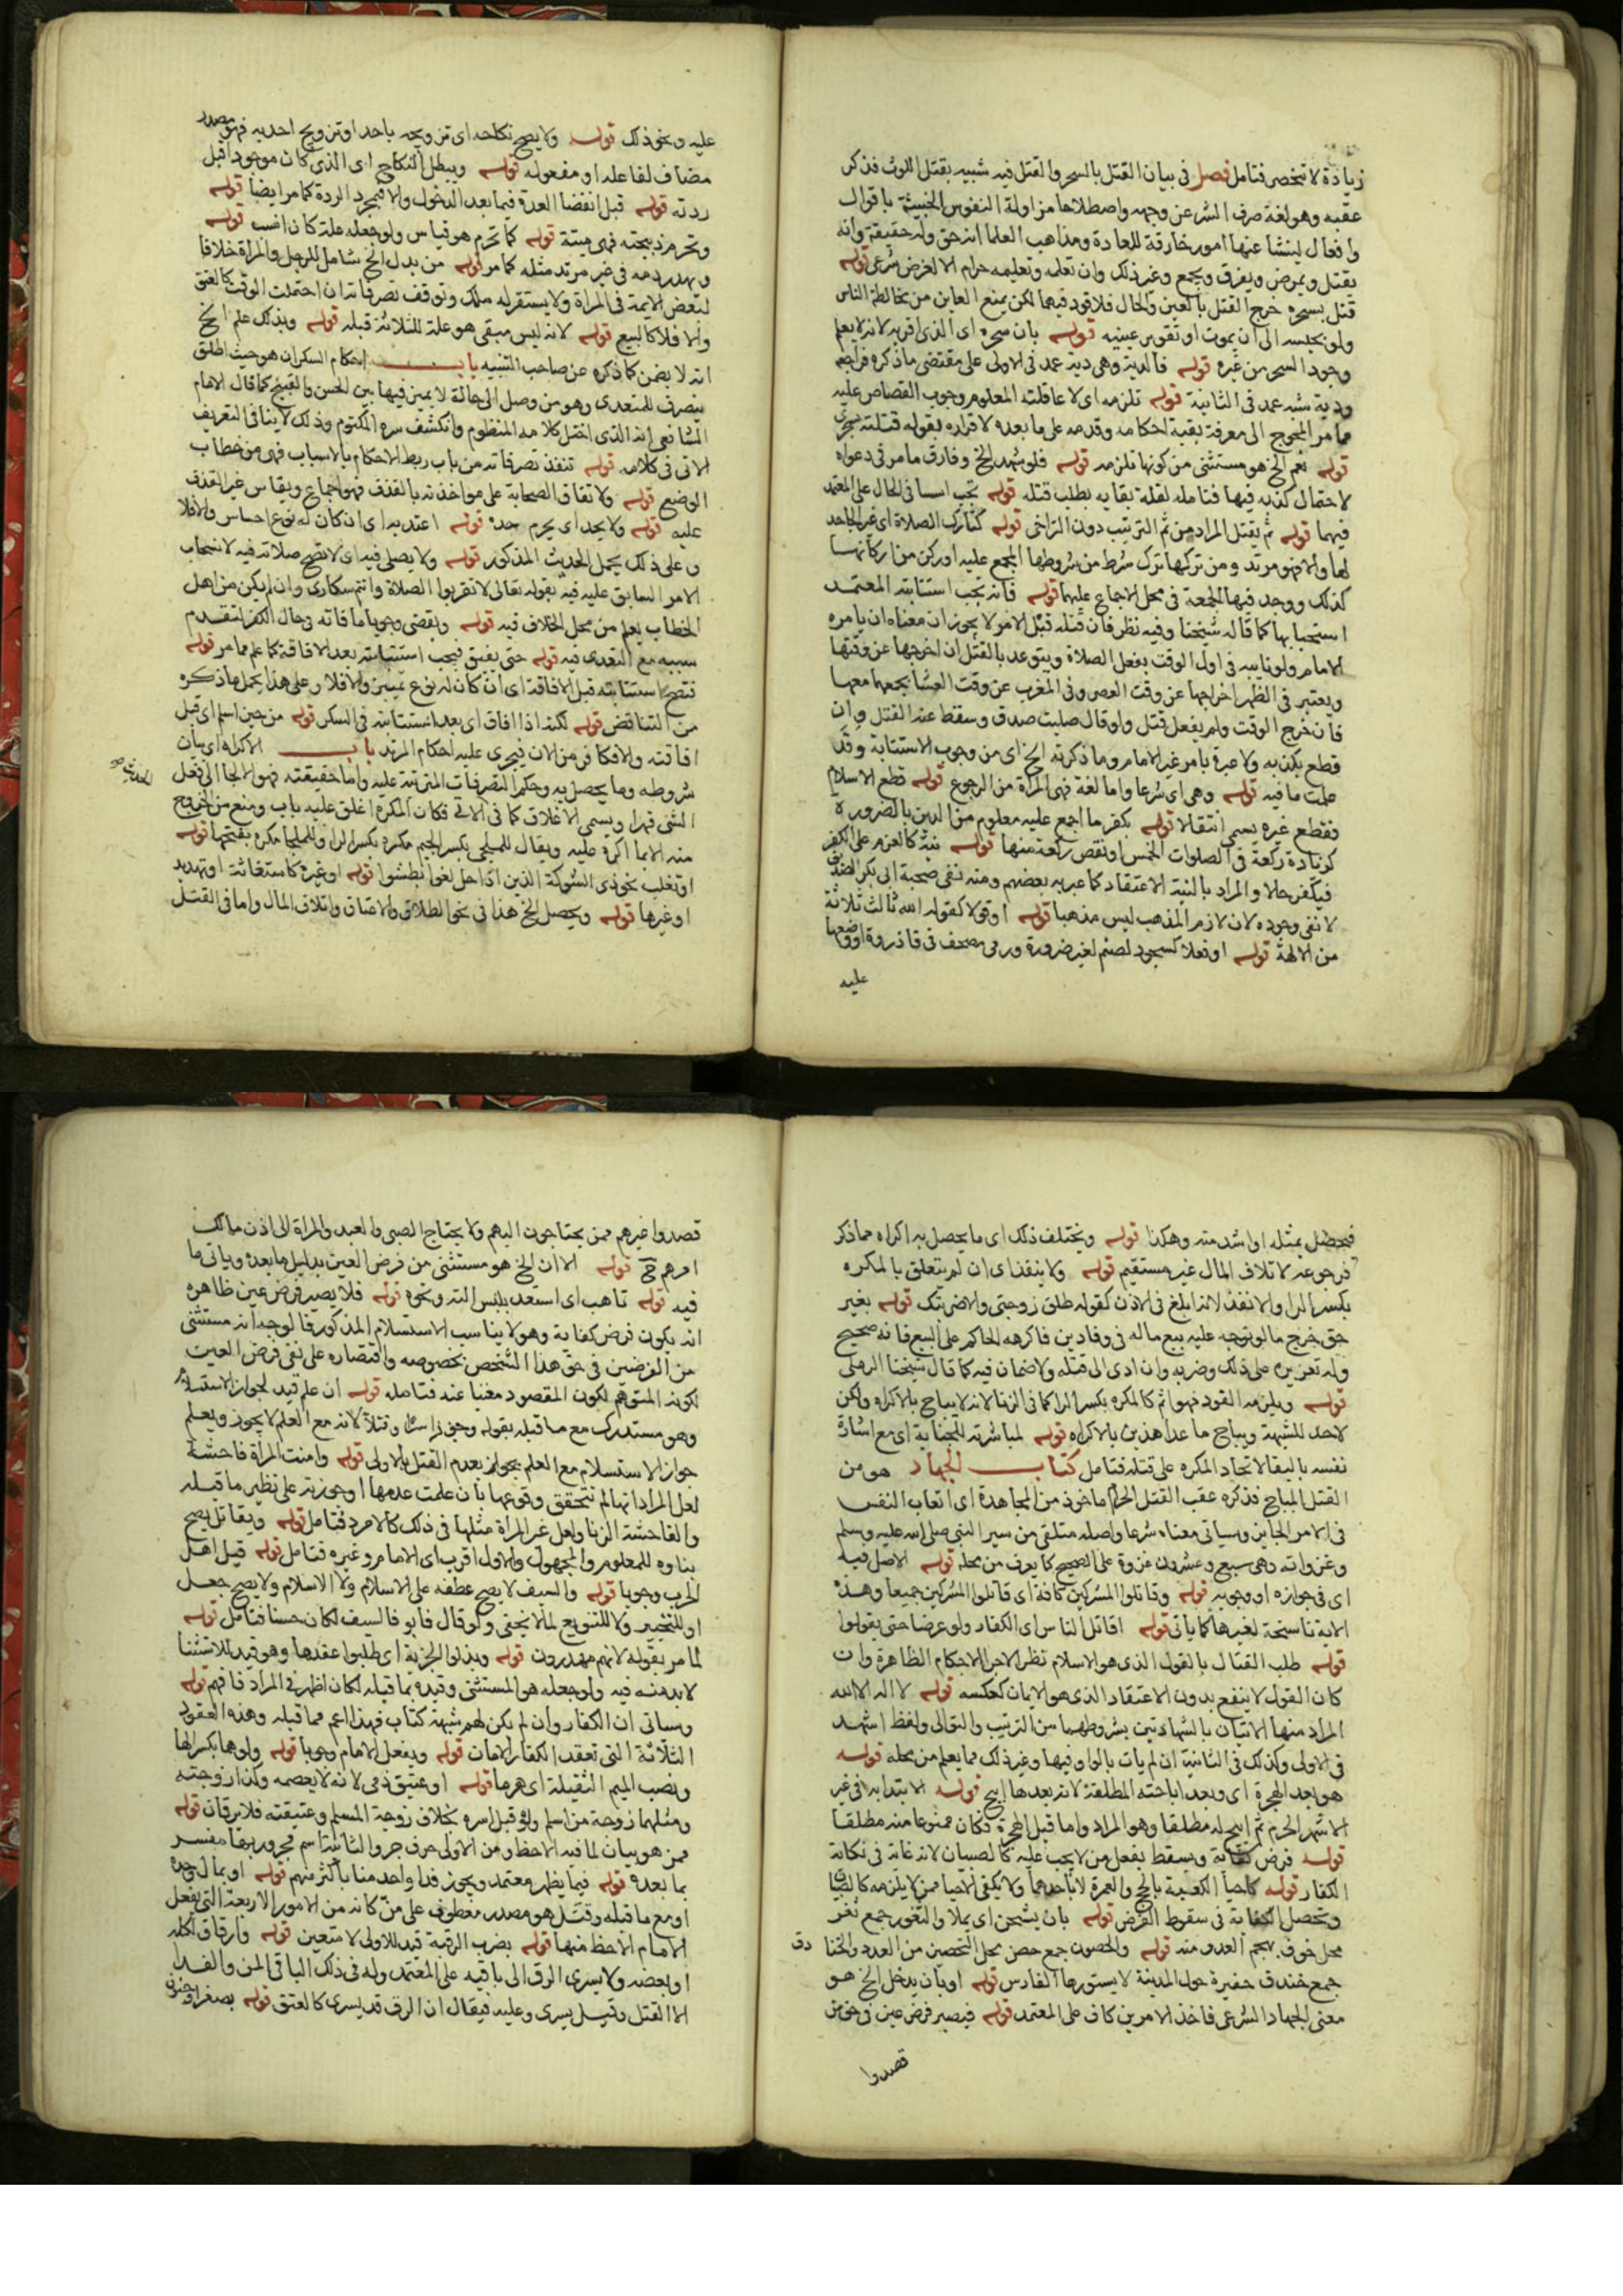 زيادة لا تنحصر فتامل فصل في بيان القتل بالسحر والقتل فيه شبيه بقتل اللوث فذكر
عقبه وهو لغة صرف الشر عن وجهه واصطلاحا مزاولة النفوس الخبيثة باقوال
وافعال لينشا عنها امور خارقة للعادة ومذاهب العلما انه حق وله حقيقة وانه
يقتل ويمرض ويفرق ويجمع وغير ذلك وان تعلمه وتعليمه حرام الا لغرض شرعي قوله
قتل بسحره خرج القتل بالعين والحال فلا قود فيهما لكن يمنع العاين من مخالطة الناس
ولو بحبسه الى ان يموت او تقوس عينيه قوله بان سحره اي الذي اقر به لانه لا يعلم
وجود السحر من غيره قوله فالدية وهي دية عمد في الاولى على مقتضى ما ذكره فراجعه
ودية شبه عمد في الثانية قوله تلزمه اي لا عاقلته المعلوم وجوب القصاص عليه
مما مر المحوج الى معرفة بقية احكامه وقدمه على ما بعده لاقراره بقوله قتلته بسحري
قوله نعم الخ هو مستثنى من كونها تلزمه قوله فلو شهد الخ وفارق ما مر في دعواه
لاحتمال كذبه فيها فتامله لقلة بقايه بطلب قتله قوله تجب اسا في الحال على المعتمد
فيهما قوله ثم يقتل المراد من ثم الترتيب دون التراخي قوله كتارك الصلاة اي غير الجاحد
لها والا فهو مرتد ومن تركها ترك شرط من شروطها المجمع عليه او ركن من اركانها
كذلك ووجد فيها الجمعة في محل الاجماع عليها قوله فانه تجب استتابته المعتمد
استحبابها كما قاله شيخنا وفيه نظر فان قتله قبل الامر لا يجوز ان معناه ان يامره
الامام ولو نايبه في اول الوقت بفعل الصلاة ويتوعد بالقتل ان اخرجها عن وقتها
ويعتبر في الظهر اخراجها عن وقت العصر وفي المغرب عن وقت العشا بجمعها معها
فان خرج الوقت ولم يفعل قتل ولو قال صليت صدق وسقط عنه القتل وان
قطع بكذبه ولا عبرة بامر غير الامام وما ذكرته الخ اي من وجوب الاستتابة وقد
علمت ما فيه قوله وهي اي شرعا واما لغة فهي المراة من الرجوع قوله قطع الاسلام
فقطع غيره يسمى انتقالا قوله بكفر ما اجمع عليه معلوم من الدين بالضرورة
كزيادة ركعة في الصلوات الخمس او نقص ركعة منها قوله نية كالعزم على الكفر
فيكفر حالا والمراد بالنية الاعتقاد كما عبر به بعضهم ومنه نفي صحبة ابي بكر الصديق
لا نفي وجوده لان لازم المذهب ليس مذهبا قوله او قولا كقوله الله ثالث ثلاثة
من الالهة قوله او فعلا كسجود لصنم لغير ضرورة ورمي مصحف في قاذورة او وضعها
عليه
عليه ونحو ذلك قوله ولا يصح نكاحه اي تزويجه باحد او تزويج احد به فهو مصدر
مضاف لفاعله او مفعوله قوله ويبطل النكاح اي الذي كان موجودا قبل
ردته قوله قبل انقضا العدة فيما بعد الدخول والا فبمجرد الردة كما مر ايضا قوله
وتحرم ذبيحته فهي ميتة قوله كما تحرم هو قياس ولو جعله علة كان انسب قوله
ويهدر دمه في غير مرتد مثله كما مر قوله من بدل الخ شامل للرجل والمراة خلافا
لبعض الايمة في المراة ولا يستقر له ملك وتوقف تصرفاته ان احتملت الوقف كالعتق
والا فلا كالبيع قوله لانه ليس مبقى هو علة للثلاثة قبله قوله وبذلك علم الخ
انه لا يضمن كما ذكره عن صاحب التنبيه باب احكام السكران هو حيث اطلق
ينصرف للمتعدي وهو من وصل الى حالة لا يميز فيها بين الحسن والقبيح كما قال الامام
الشافعي انه الذي اختل كلامه المنظوم وانكشف سره المكتوم وذلك لا ينافي التعريف
الاتي في كلامه قوله تنفذ تصرفاته من باب ربط الاحكام بالاسباب فهي من خطاب
الوضع قوله ولاتفاق الصحابة على مواخذته بالقذف فهو اجماع ويقاس غير القذف
عليه قوله ولا يحد اي يحرم حده قوله اعتد به اي ان كان له نوع احساس والا فلا
وعلى ذلك يحمل الحديث المذكور قوله ولا يصلى فيه اي لا تصح صلاته فيه لانسحاب
الامر السابق عليه فيه بقوله تعالى لا تقربوا الصلاة وانتم سكارى وان لم يكن من اهل
الخطاب يعلم من محل الخلاف فيه قوله ويقضي وجوبا ما فاته وحال الكفر لتقدم
سببه مع التعدي فيه قوله حتى يفيق فيجب استتابته بعد الافاقة كما علم مما مر قوله
فتصح استتابته قبل الافاقة اي ان كان له نوع تمييز والا فلا وعلى هذا يحمل ما ذكره
من التناقض قوله لكنه اذا افاق اي بعد استتابته في السكر قوله من حين اسلم اي قبل
افاقته والا فكافر من الان فيجري عليه احكام المرتد باب الاكراه اي بيان
شروطه وما يحصل به وحكم التصرفات المترتبة عليه واما حقيقته فهو الالجا الى فعل
الشي قهرا ويسمى الاغلاق كما في الاتي فكان المكره اغلق عليه باب ومنع من الخروج
منه الا بما اكره عليه ويقال للملجي بكسر الجيم مكره بكسر الرا وللملجا مكره بفتحها قوله
او تغلب نحو ذي الشوكة الذين اذا حل لغوا بطشوا قوله او غيره كاستغاثة او تهديد
او غيرها قوله ويحصل الخ هذا في نحو الطلاق والاعتاق واتلاف المال واما في القتل
فيحصل بمثله او اشد منه وهكذا قوله ويختلف ذلك اي ما يحصل به اكراه مما ذكر
فرجوعه لاتلاف المال غير مستقيم قوله ولا ينفذ اي ان لم يتعلق بالمكره
بكسر الرا والا نفذ لانه ابلغ في الاذن كقوله طلق زوجتي والا ضربتك قوله بغير
حق خرج ما لو توجه عليه بيع ماله في وفا دين فاكرهه الحاكم على البيع فانه صحيح
وله تعزيره على ذلك وضربه وان ادى الى قتله ولا ضمان فيه كما قال شيخنا الرملي
قوله ويلزمه القود فهو اثم كالمكره بكسر الرا كما في الزنا لانه لا يباح بالاكراه ولكن
لا حد للشبهة ويباح ما عدا هذين بالاكراه قوله لمباشرته الجناية اي مع اشارة
نفسه بالبقا لايجاد المكره على قتله فتامل كتاب الجهاد هو من
القتل المباح فذكره عقب القتل الحرام ماخوذ من المجاهدة اي اتعاب النفس
في الامر الجايز وسياتي معناه شرعا واصله متلقى من سير النبي صلى الله عليه وسلم
وغزواته وهي سبع وعشرون غزوة على الصحيح كما يعرف من محله قوله الاصل فيه
اي في جوازه او وجوبه قوله وقاتلوا المشركين كافة اي قاتلوا المشركين جميعا وهذه
الاية ناسخة لغيرها كما ياتي قوله اقاتل الناس اي الكفار ولو عرضا حتى يقولوا
قوله طلب القتال بالقول الذي هو الاسلام نظر الاجر الاحكام الظاهرة وان
كان القول لا ينفع بدون الاعتقاد الذي هو الايمان كعكسه قوله لا اله الا الله
المراد منها الاتيان بالشهادتين بشروطهما من الترتيب والتوالي ولفظ اشهد
في الاولى وكذلك في الثانية ان لم يات بالواو فيها وغير ذلك مما يعلم من محله قوله
هو بعد الهجرة اي وبعد اباحته المطلقة لانه بعدها ابيح قوله الابتدا به في غير
الاشهر الحرم ثم ابيح له مطلقا وهو المراد واما قبل الهجرة فكان ممنوعا منه مطلقا
قوله فرض كفاية ويسقط بفعل من لا يجب عليه كالصبيان لانه غاية في نكاية
الكفار قوله كاحيا الكعبة بالحج والعمرة لا باحدهما ولا يكفي الاحيا ممن لا يلزمه كالصبيان
وتحصل الكفاية في سقوط الفرض قوله بان يشحن اي يملا والثغور جمع ثغر
محل خوف بهجم العدو منه قوله والحصون جمع حصن محل التحصين من العدو والخنا دق
جمع خندق حفيرة حول المدينة لا يستورها الفارس قوله او بان يدخل الخ هو
معنى الجهاد الشرعي فاخذ الامرين كاف على المعتمد قوله فيصير فرض عين في حق من
قصدوا
قصدوا غيرهم ممن يحتاجون اليهم ولا يحتاج الصبي والعبد والمراة الى اذن مالك
امرهم ح قوله الا ان الخ هو مستثنى من فرض العين بدليل ما بعده وياتي ما
فيه قوله تاهب اي استعد بلبس الته ونحوه قوله فلا يصير فرض عين ظاهره
انه يكون فرض كفاية وهو لا يناسب الاستسلام المذكور فالوجه انه مستثنى
من الفرضين في حق هذا الشخص بخصوصه واقتصاره على نفي فرض العين
لكونه المتوهم لكون المقصود مغنيا عنه فتامله قوله ان علم قيد لجواز الاستسلام
وهو مستدرك مع ما قبله بقوله وجوز اسرا وقتلا لانه مع العلم لا يجوز ويعلم
جواز الاستسلام مع العلم بجوازه بعدم القتل بالاولى قوله وامنت المراة فاحشة
لعل المراد انها لم تتحقق وقوعها بان علمت عدمها او جوزته على نظير ما قبله
والفاحشة الزنا ولعل غير المراة مثلها في ذلك كالامرد فتامل قوله ويقاتل يصح
بناوه للمعلوم والمجهول والاول اقرب اي الامام وغيره فتامل قوله قبل اهل
الحرب وجوبا قوله والسيف لا يصح عطفه على الاسلام ولا الاسلام ولا يصح جعل
او للتخيير ولا للتنويع لما لا يخفى ولو قال فابوا فالسيف لكان حسنا فتامل قوله
لما مر بقوله لانهم مهدرون قوله وبذلوا الجزية اي طلبوا عقدها وهو قيد للاستثنا
لا بد منه فيه ولو جعله هو المستثنى وقيده بما قبله لكان اظهر في المراد فافهم قوله
وسياتي ان الكفار وان لم يكن لهم شبهة كتاب فهذا اعم مما قبله وهذه العقود
الثلاثة التي تعقد الكفار الامان قوله ويفعل الامام وجوبا قوله ولو هما بكسر الها
ونصب الميم الثقيلة اي هرما قوله او عتيق ذمي لانه لا يعصمه وكذا زوجته
ومثلهما زوجة من اسلم ولو قبل اسره بخلاف زوجة المسلم وعتيقته فلا يرقان قوله
ممن هو بيان لما فيه الاحظ ومن الاولى حرف جر والثانية اسم مجرور بها مفسر
بما بعده قوله فيما يظهر معتمد ويجوز فدا واحد منا باكثر منهم قوله او بمال وحده
او مع ما قبله وقتل هو مصدر معطوف على من كانه من الامور الاربعة التي يفعل
الامام الاحظ منها قوله بضرب الرقبة قيد للاولى لا متعين قوله وارقاق لكله
او بعضه ولا يسري الرق الى باقيه على المعتمد وله في ذلك الباقي المن والفدا
الا القتل وقيل يسري وعليه فيقال ان الرق قد يسري كالعتق قوله بصغر او جنون